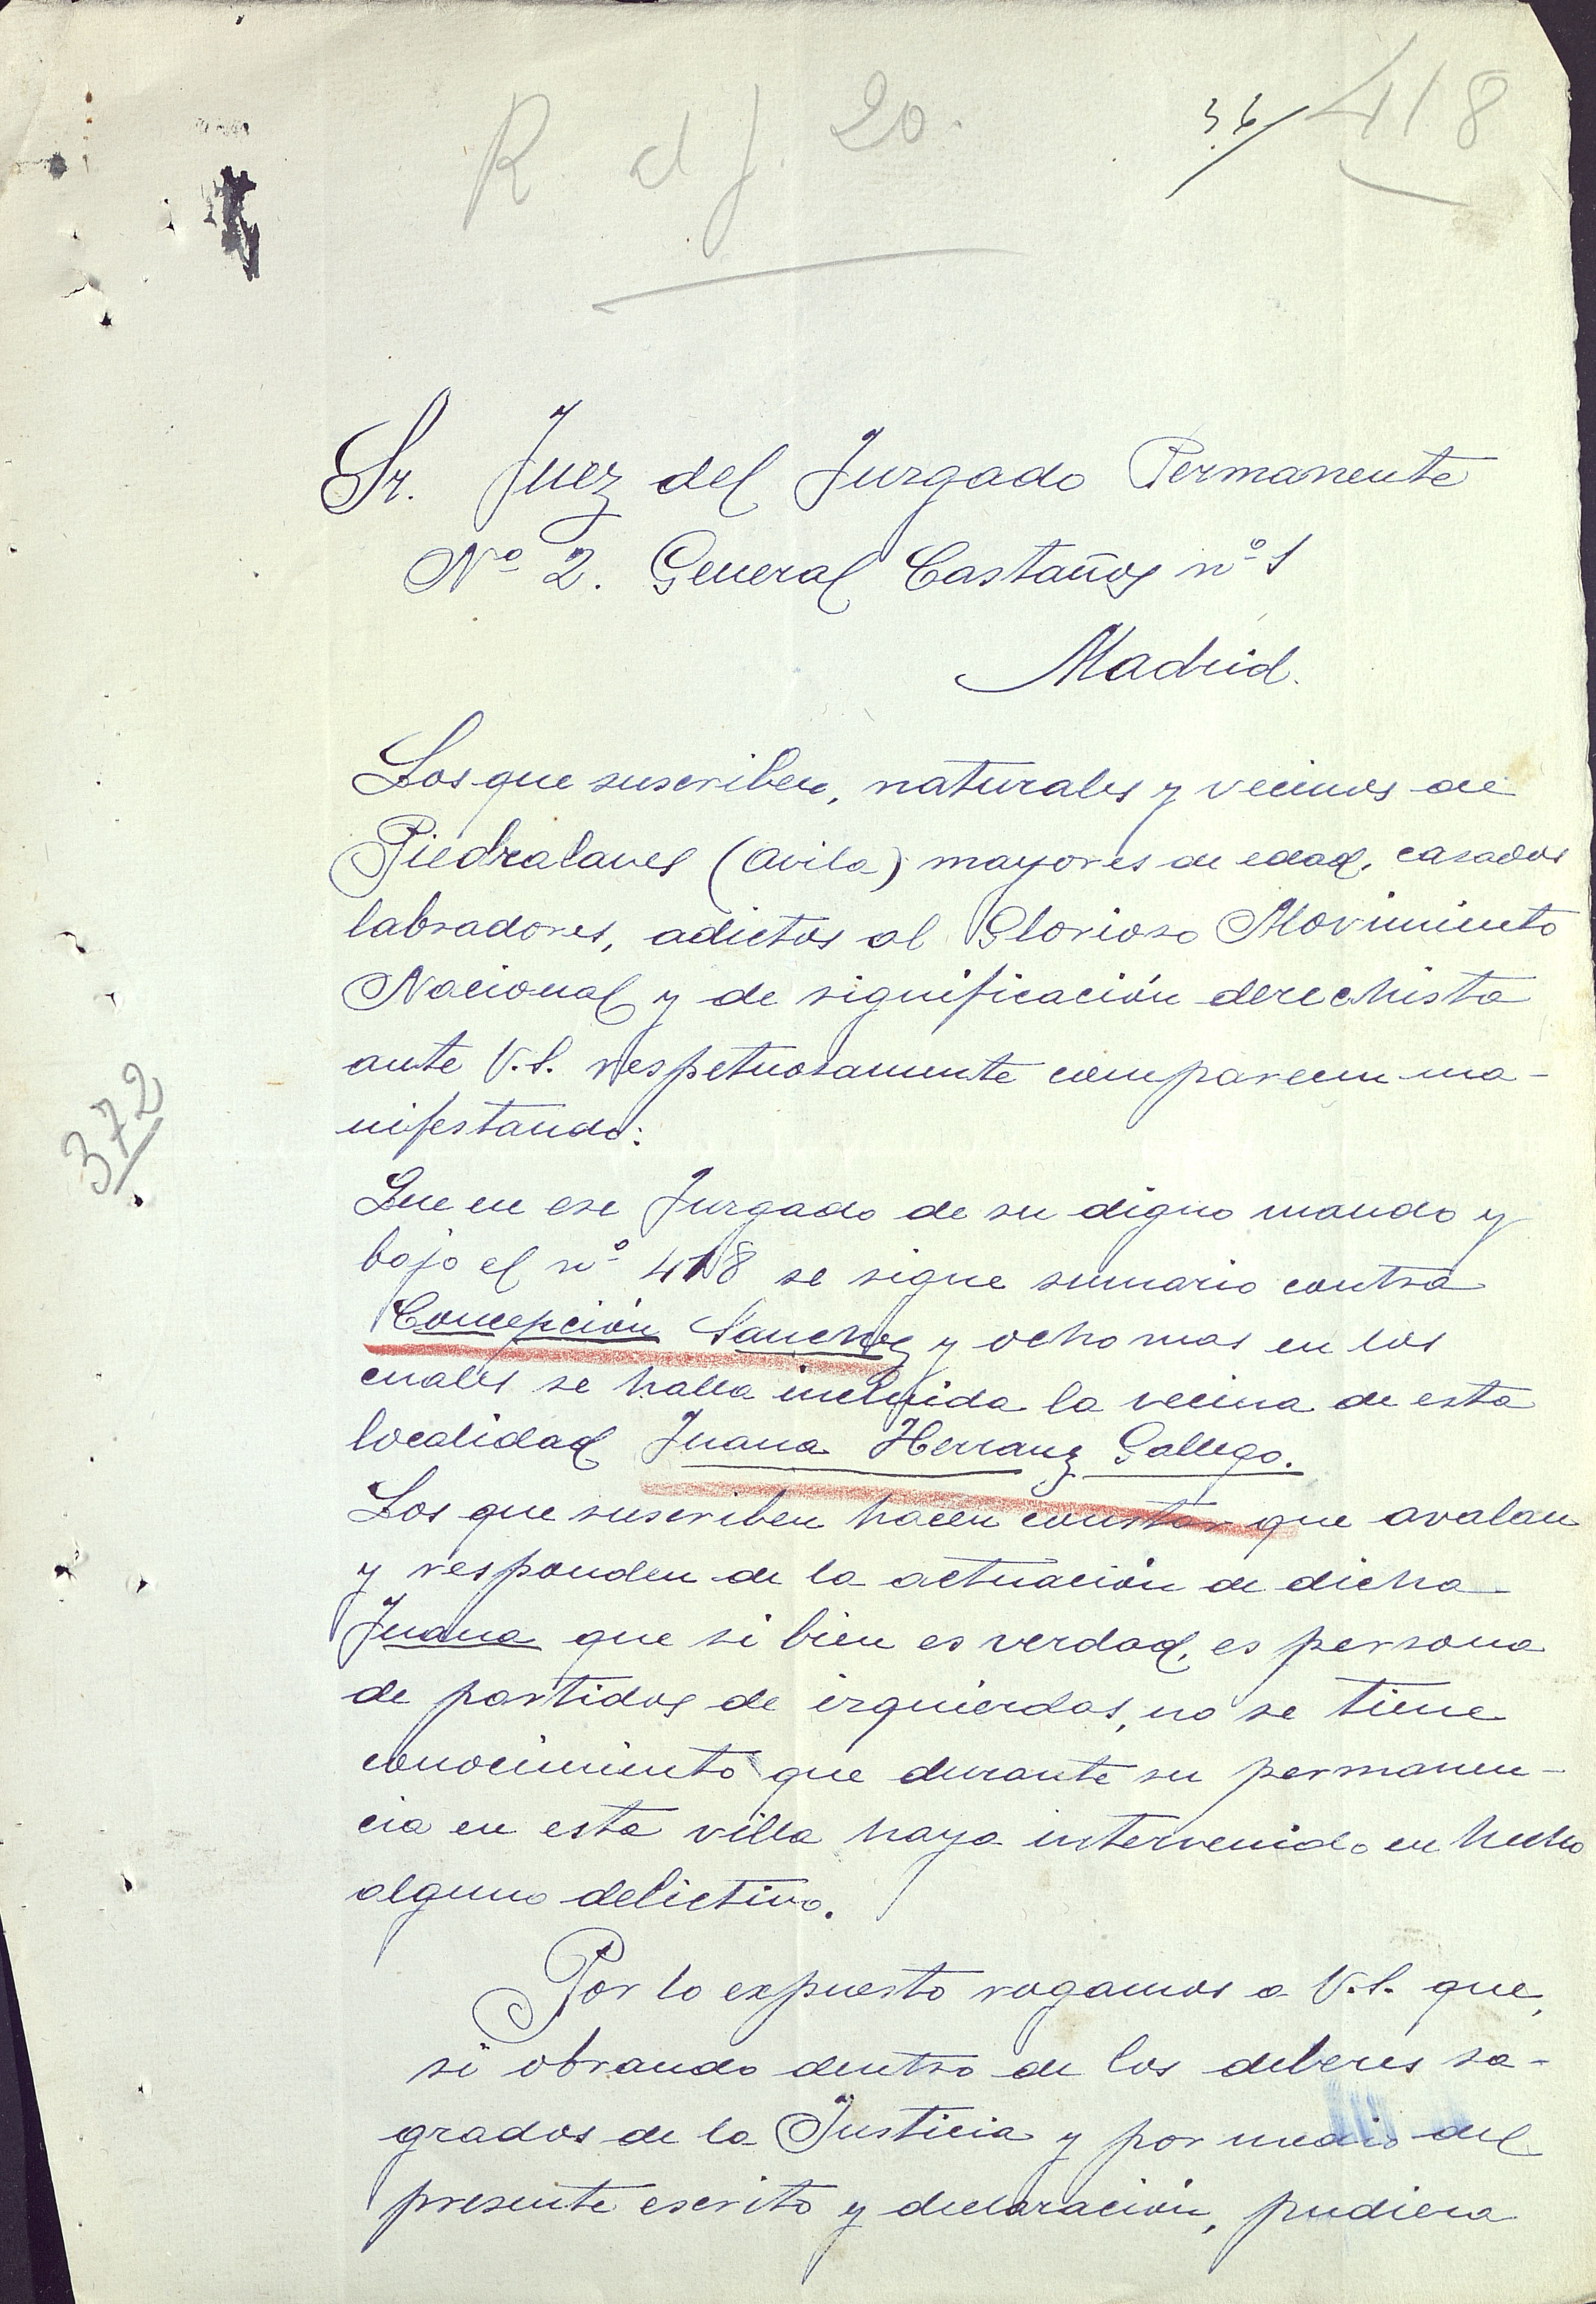 R. d j. 20.
36/ 418
Sr. Juez del Juzgado Permanente
Nº 2. General Castaños nº 1
Madrid.
Los que suscriben, naturales y vecinos de
Piedralaves (Avila) mayores de edad, casados
labradores, adictos al Glorioso Movimiento
Nacional y de significación derechista
ante V.S. respetuosamente comparecen ma-
nifestando:
Que en ese Juzgado de su digno mando y
bajo el nº 418 se sigue sumario contra
Concepción Sanchez y ocho mas en los
cuales se halla incluida la vecina de esta
localidad Juana Herranz Gallego.
Los que suscriben hacen constar que avalan
y responden de la actuación de dicha
Juana que si bien es verdad, es persona
de partidos de izquierdas, no se tiene
conocimiento que durante su permanen-
cia en esta villa haya intervenido en hecho
alguno delictivo.
Por lo expuesto rogamos a V.S. que,
si obrando dentro de los deberes sa-
grados de la Justicia y por medio del
presente escrito y declaración, pudiera
372